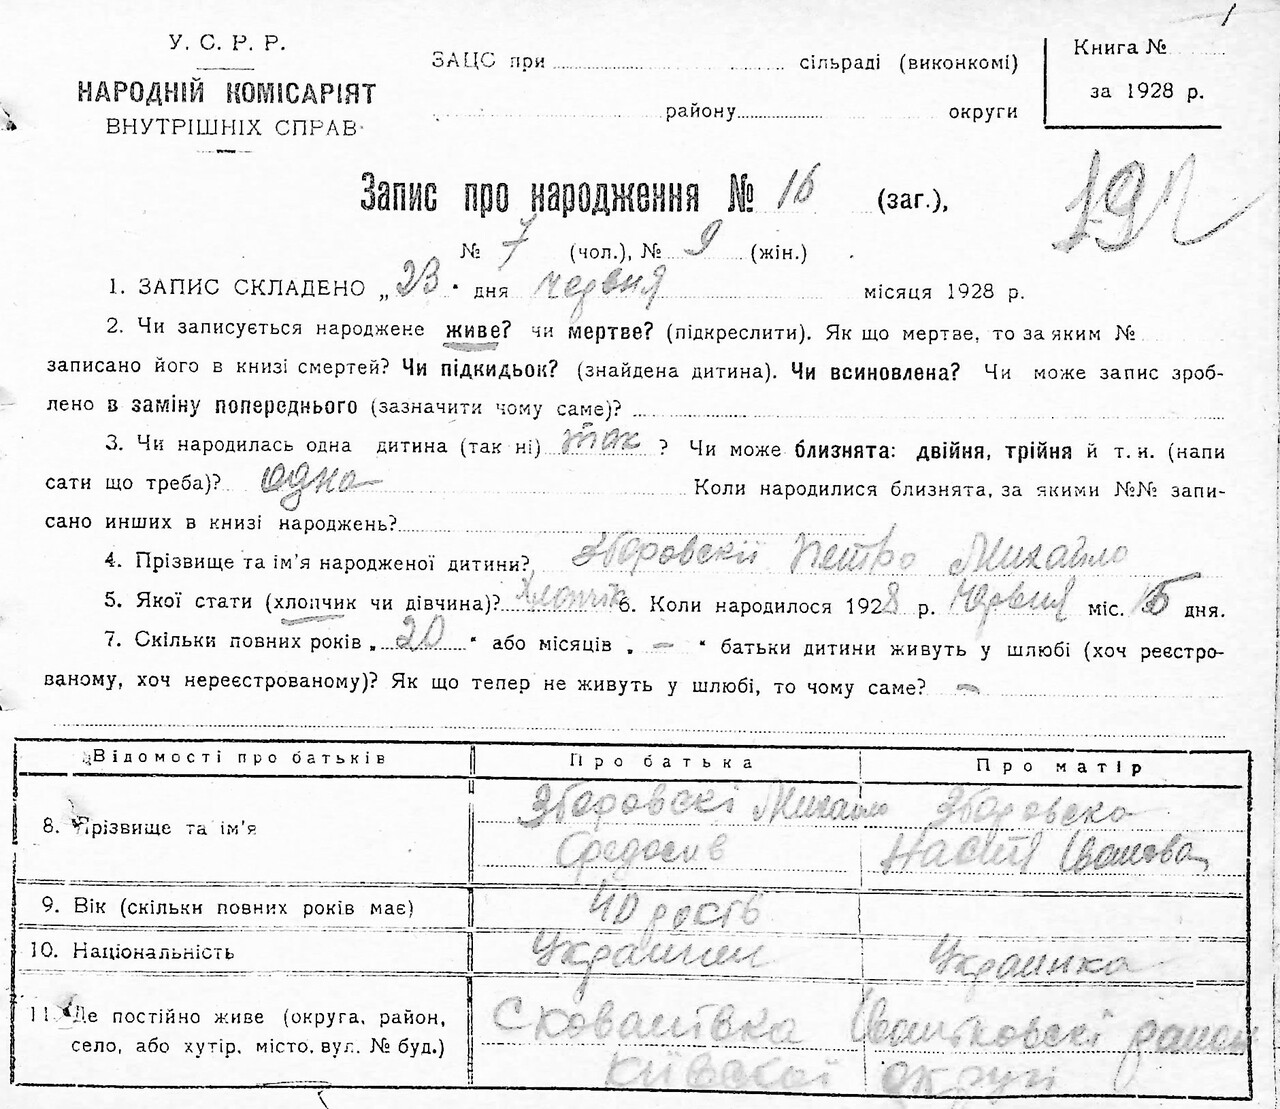 У. С. Р. Р.
НАРОДНІЙ КОМІСАРІЯТ
ВНУТРІШНІХ СПРАВ
ЗАЦС при сільраді (виконкомі)
району округи
Книга №
за 1928 р.
Запис про народження № 16 (заг.),
№ 7 (чол.), № 9 (жін.)
1. ЗАПИС СКЛАДЕНО „23" дня червня місяця 1928 р.
2. Чи записується народжене живе? чи мертве? (підкреслити). Як що мертве, то за яким №
записано його в книзі смертей? Чи підкидьок? (знайдена дитина). Чи всиновлена? Чи може запис зроб-
лено в заміну попереднього (зазначити чому саме)?
3. Чи народилась одна дитина (так ні) так ? Чи може близнята: двійня, трійня й т. и. (напи
сати що треба)? одна Коли народилися близнята, за якими №№ запи-
сано инших в книзі народжень?
4. Прізвище та ім'я народженої дитини? Зборовскій Петро Михайло
5. Якої стати (хлопчик чи дівчина)? Хлопчік 6. Коли народилося 1928 р. Червня міс. 15 дня.
7. Скільки повних років „20" або місяців „—" батьки дитини живуть у шлюбі (хоч реєстро-
ваному, хоч нереєстрованому)? Як що тепер не живуть у шлюбі, то чому саме? —
Відомості про батьків Про батька Про матір
8. Прізвище та ім'я Зборовскі Михайло Зборовска
Федосів Настя Іванова
9. Вік (скільки повних років має) 40 років
10. Національність Украинец Украинка
11. Де постійно живе (округа, район,
село, або хутір, місто, вул. № буд.)
С район
Київскої округі